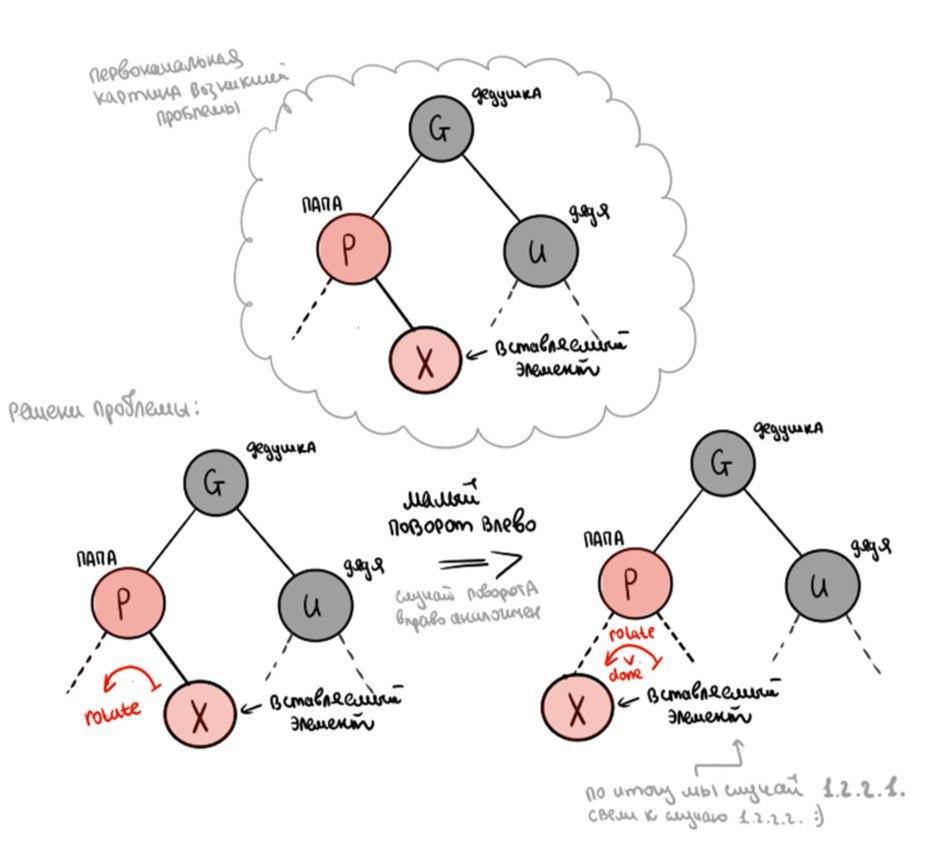 первоначальная
картина возникшей
проблемы
дедушка
G
папа
дядя
P
U
X
вставляемый
элемент
решени проблемы:
дедушка
G
папа
дядя
P
U
rotate
X
вставляемый
элемент
малый
поворот влево
случай поворота
вправо аналогичен
дедушка
G
папа
дядя
P
U
rotate
done
X
вставляемый
элемент
по итогу мы случай 1.2.2.1.
свели к случаю 1.2.2.2. :)